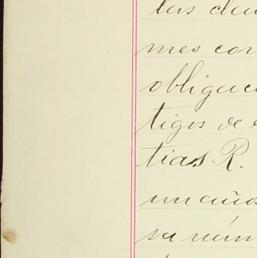 las da
mes con
obligac
tigos de
tias R.
un años
sa núm